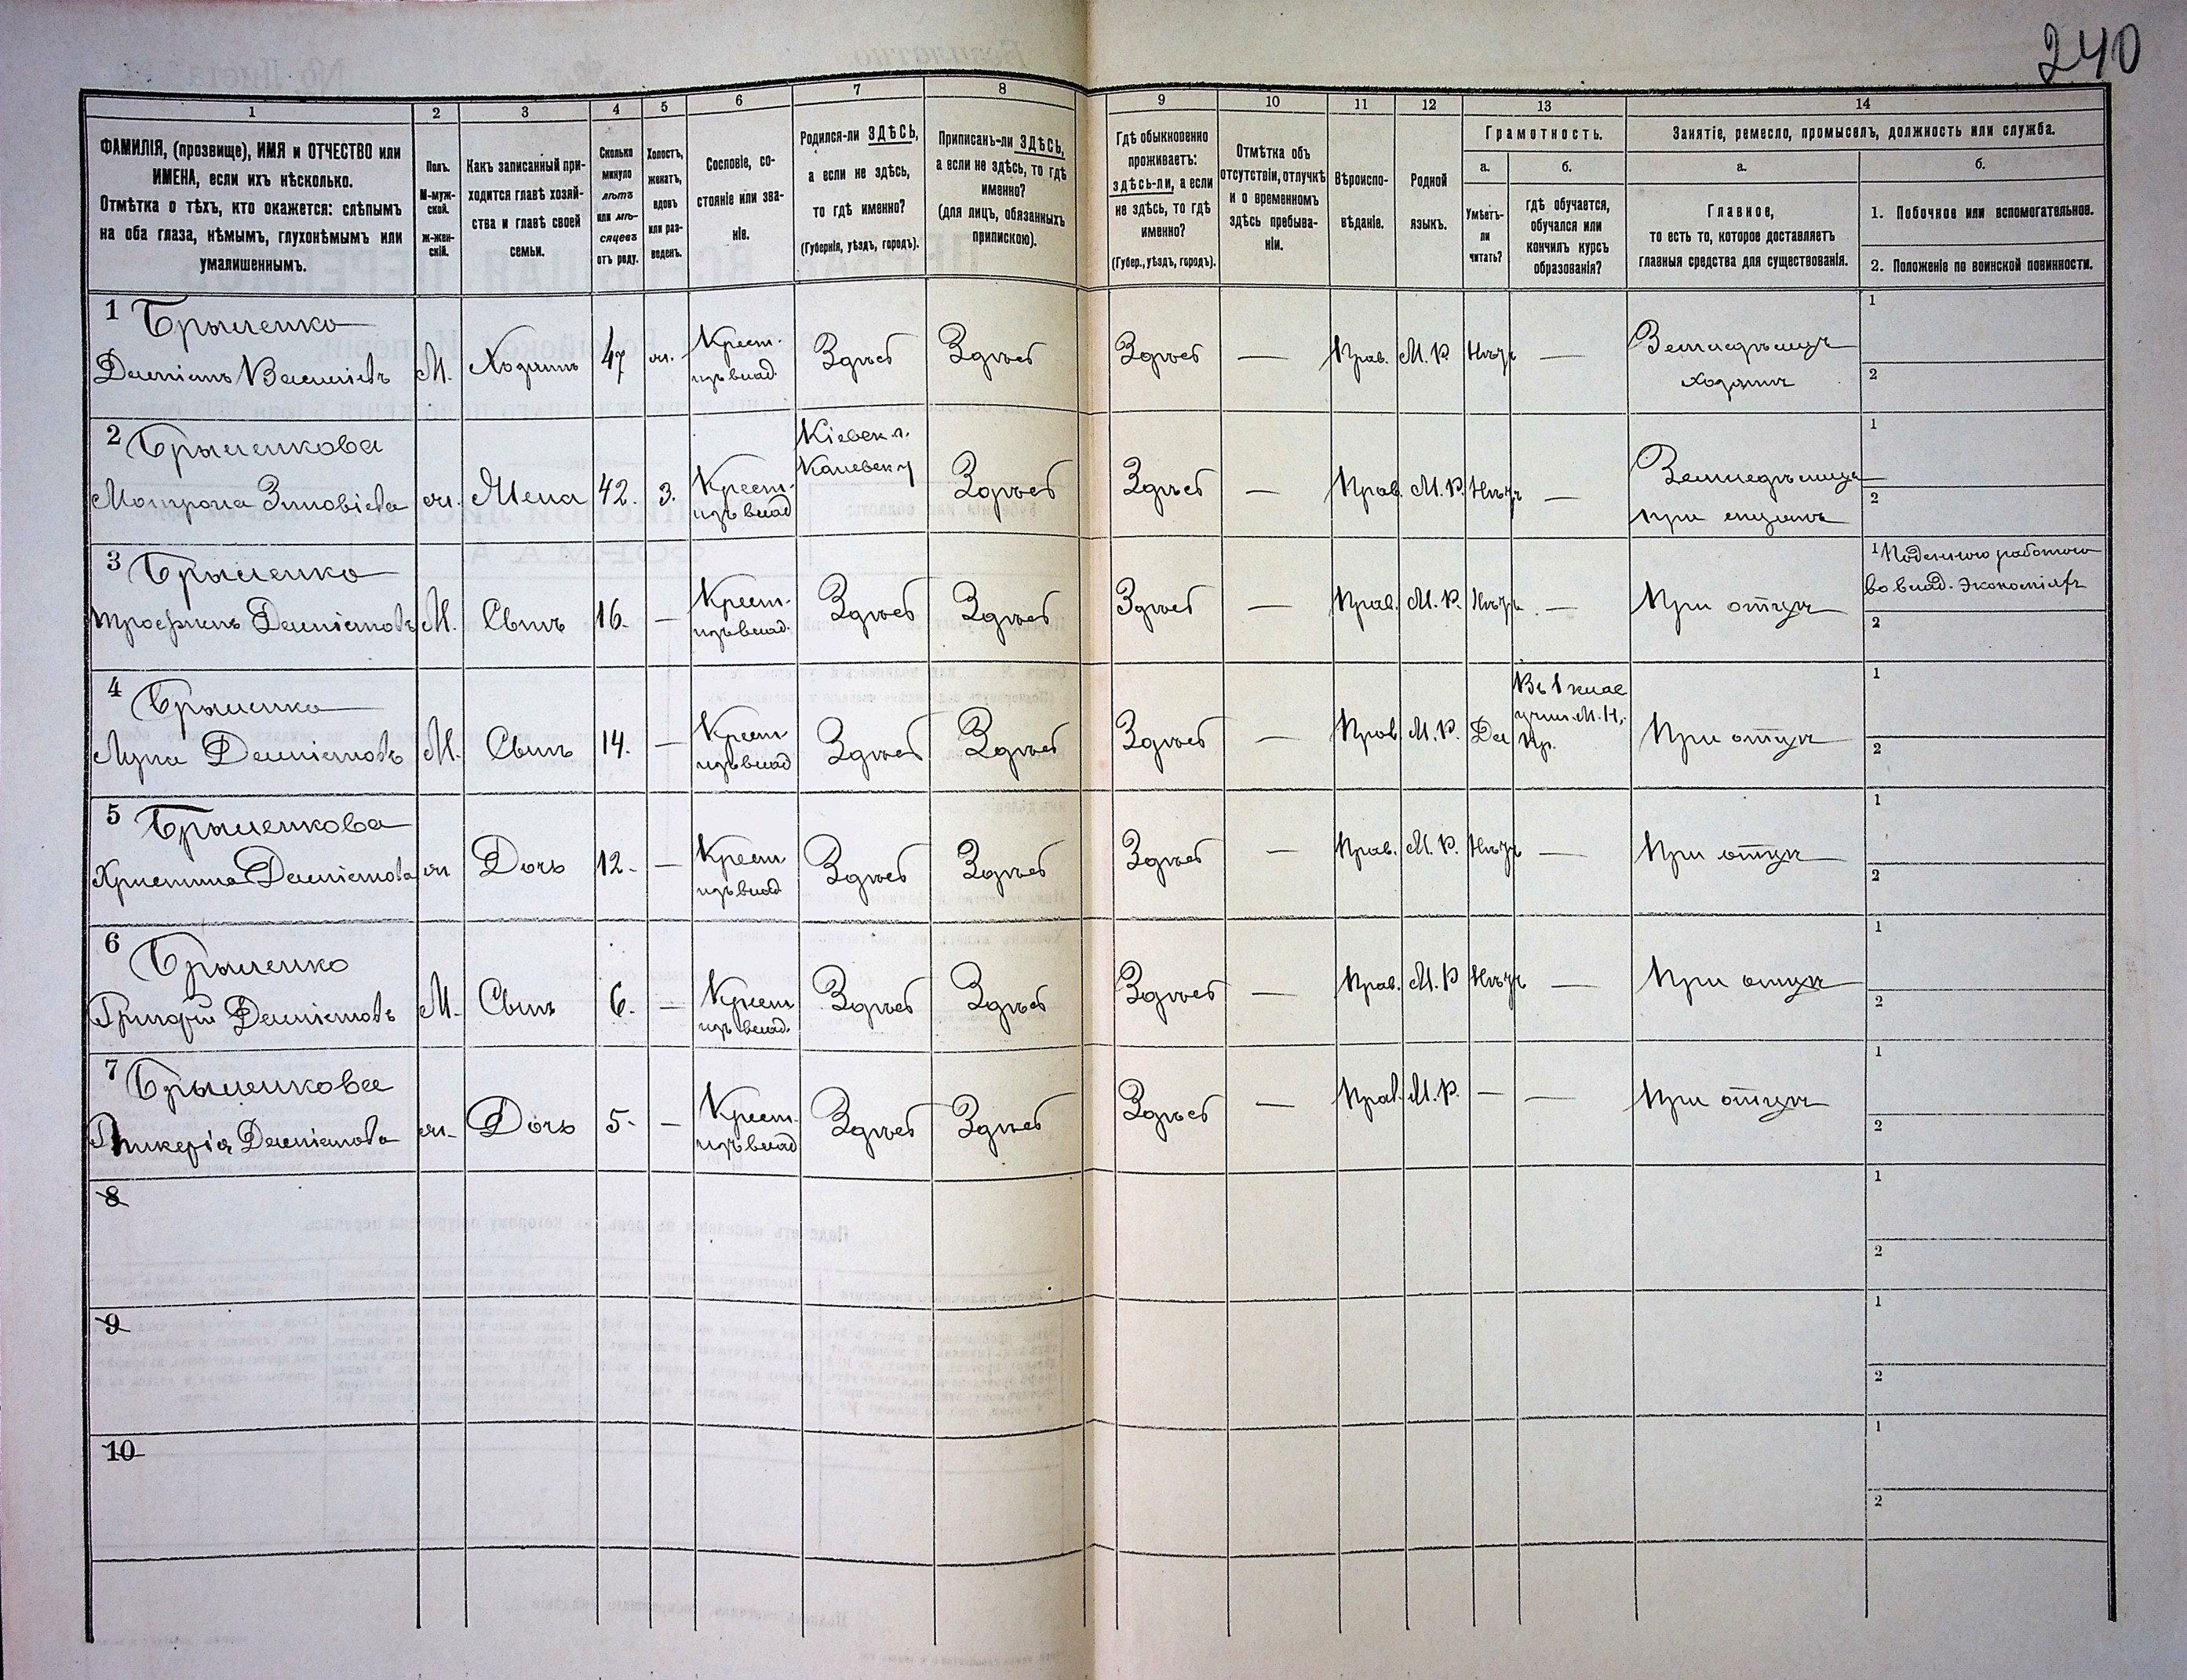 240
1 2 3 4 5 6 7 8 9 10 11 12 13 14
ФАМИЛІЯ, (прозвище), ИМЯ и ОТЧЕСТВО или
ИМЕНА, если ихъ нѣсколько.
Отмѣтка о тѣхъ, кто окажется: слѣпымъ
на оба глаза, нѣмымъ, глухонѣмымъ или
умалишеннымъ.
Полъ.
М-муж-
ской.
ж-жен-
скій.
Какъ записанный при-
ходится главѣ хозяй-
ства и главѣ своей
семьи.
Сколько
минуло
лѣтъ
или мѣ-
сяцевъ
отъ роду.
Холостъ,
женатъ,
вдовъ
или раз-
веденъ.
Сословіе, со-
стояніе или зва-
ніе.
Родился-ли ЗДѢСЬ,
а если не здѣсь,
то гдѣ именно?
(Губернія, уѣздъ, городъ).
Приписанъ-ли ЗДѢСЬ,
а если не здѣсь, то гдѣ
именно?
(для лицъ, обязанныхъ
припискою).
Гдѣ обыкновенно
проживаетъ:
здѣсь-ли, а если
не здѣсь, то гдѣ
именно?
(Губер., уѣздъ, городъ).
Отмѣтка объ
отсутствіи, отлучкѣ
и о временномъ
здѣсь пребыва-
ніи.
Вѣроиспо-
вѣданіе.
Родной
языкъ.
Грамотность.
а.
Умѣетъ-
ли
читать?
б.
гдѣ обучается,
обучался или
кончилъ курсъ
образованія?
Занятіе, ремесло, промыселъ, должность или служба.
а.
Главное,
то есть то, которое доставляетъ
главныя средства для существованія.
б.
1. Побочное или вспомогательное.
2. Положеніе по воинской повинности.
1
Даміанъ Василіевъ
М. Хозяинъ 47 ж. Крест. изъ влад. Здѣсь Здѣсь Здѣсь — Прав. М. Р. Нѣтъ —
Земледѣлецъ
хозяинъ
1
2
2
Матрона Зиновіева
ж. Жена 42. З. Крест. изъ влад
Кіевск. г.
Каневск у
Здѣсь Здѣсь — Прав. М. Р. Нѣтъ —
1
2
3
Трофимъ Даміановъ
М. Сынъ 16. — Крест. изъ влад. Здѣсь Здѣсь Здѣсь — Прав. М. Р. Нѣтъ — При отцѣ
1 Поденною работою
во влад. Экономіяхъ
2
4
Лука Даміановъ
М. Сынъ 14. — Крест изъ влад Здѣсь Здѣсь Здѣсь — Прав. М. Р. Да
Въ 1 клас
учил. М. Н.
Пр.
При отцѣ
1
2
5
Христина Даміанова
ж Дочь 12. — Крест изъ влад Здѣсь Здѣсь Здѣсь — Прав. М. Р. Нѣтъ — При отцѣ
1
2
6
Григорій Даміановъ
М. Сынъ 6. — Крест изъ влад. Здѣсь Здѣсь Здѣсь — Прав. М. Р Нѣтъ — При отцѣ
1
2
7
Гликерія Даміанова
ж. Дочь 5. — Крест. изъ влад Здѣсь Здѣсь Здѣсь — Прав. М. Р. — — При отцѣ
1
2
8
1
2
9
1
2
10
1
2